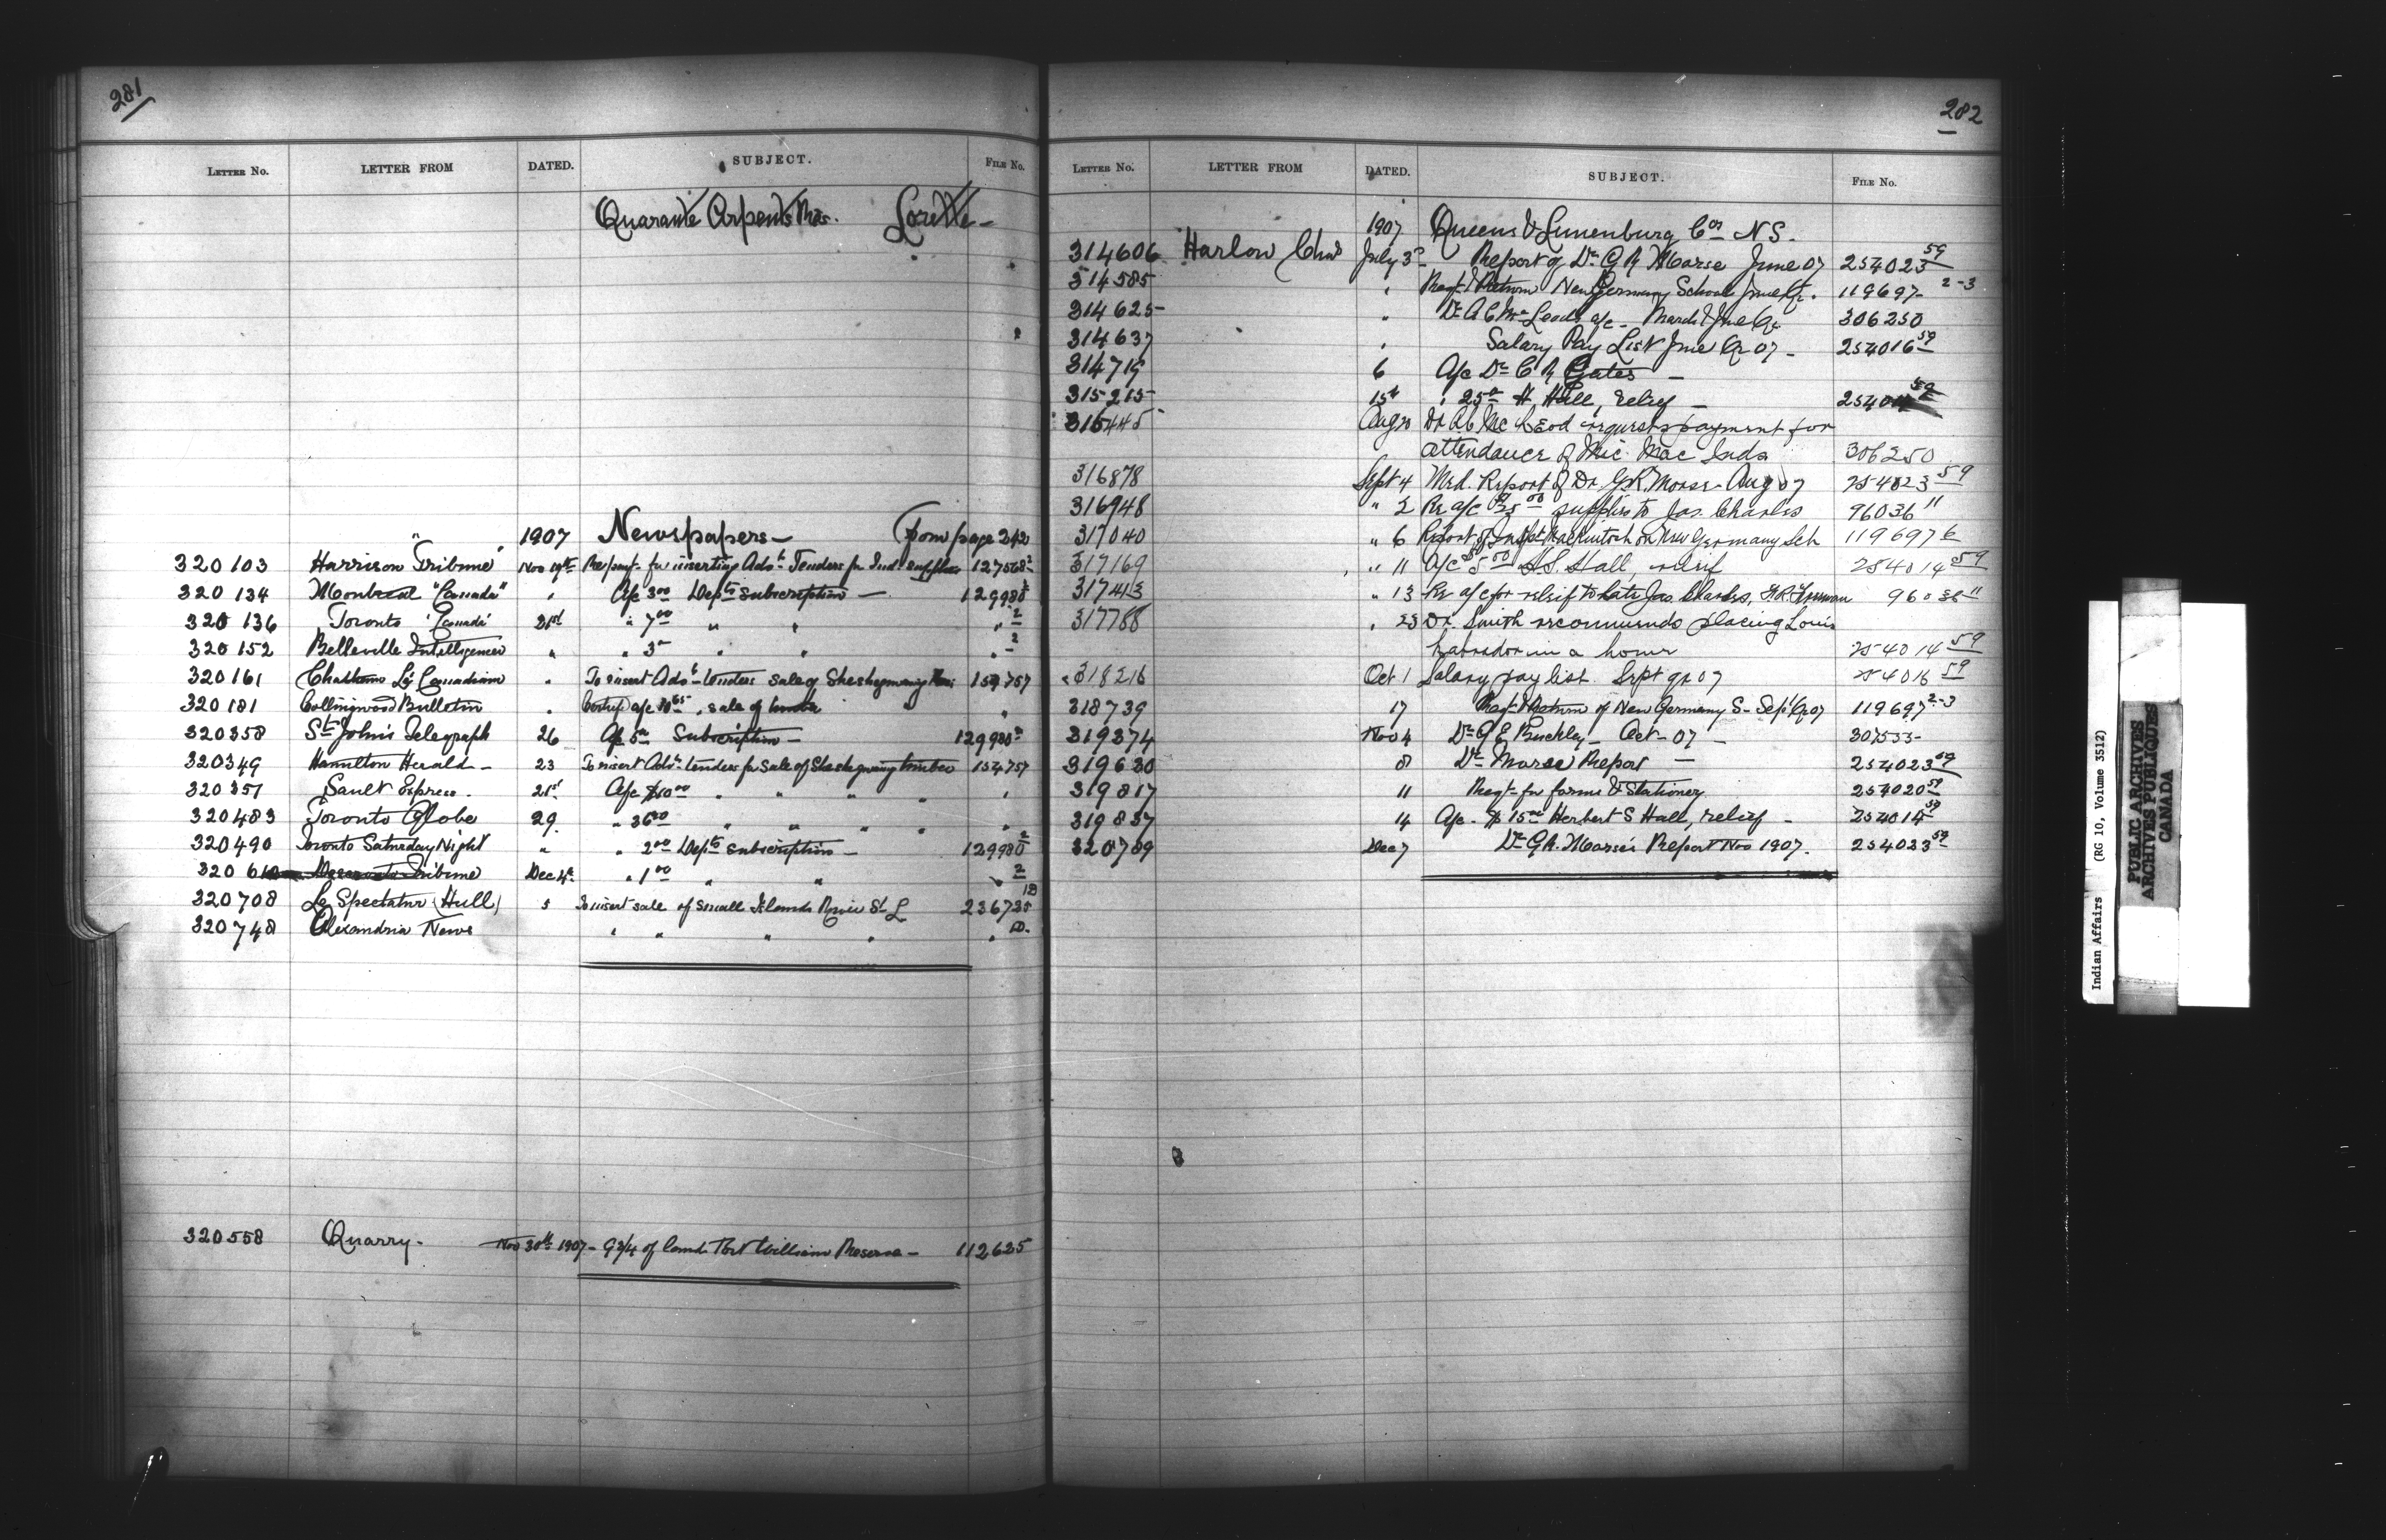 281
LETTER NO. LETTER FROM DATED. SUBJECT. FILE NO.
Quarante Arpents Res. Lorette -
1907 Newspapers - (from page 242
320103 Harrison Tribune Nov 19th for inserting Advt Tenders for Ind. supplies 127568 2
320134 Montreal "Canada" " A/c 3 00 Depts subscription - 129980 2
320136 Toronto "Canada" 21st " 7 00 " " " 2
320152 Belleville Intelligencer " " 3 00 " " " 2
320161 Chatham Le Canadian " To insert Advt tenders sale of Sheshegwaning 154757
320181 Collingwood Bulletin " A/c , sale of "
320358 St John's Telegraph 26 A/c 5 00 Subscription - 129980 2
320349 Hamilton Herald - 23 To insert Advt tenders for sale of Sheshegwaning timber 154757
320351 Sault Express. 21st A/c $10 00 " " " " "
320483 Toronto Globe 29. " 36 00 " " " " "
320490 Toronto Saturday Night " " 2 00 Depts subscription - 129980 2
320 Tribune Dec 4th " 1 00 " " " 2
320708 Le Spectateur (Hull) 5 To insert sale of small Islands River St L 236735 1D
320748 Alexandria News " " " " " D.
320558 Quarry - Nov 30th 1907 - 9 3/4 of land Fort William Reserve - 112625
282
LETTER NO. LETTER FROM DATED. SUBJECT. FILE NO.
1907 Queens & Lunenburg Cos N S.
314606 Harlow Chas July 3rd Report of Dr G R Morse June 07 254023 59
314585 " Reqt & Return New Germany School June Qr. 119697- 2-3
314625 " Dr A C McLeods a/c - March & June Qr 306250
314637 " Salary Pay List June Qr 07 - 254016 59
314719 6 A/c Dr C R Gates -
315215 15th " 25 00 H. Hall, relief - 25401 59
316445 Aug 20 Dr A C McLeod requests payment for
attendance of Mic Mac Inds 306250
316878 Sept 4 Med. Report of Dr G.R. Morse - Aug 07 254023 59
316948 " 2 Re a/c supplies to Jas. Charles 96036 "
317040 " 6 Report of Inspt MacKintosh on New Germany Sch 119697 2
317169 " 11 A/c $5 00 H.S. Hall, relief 254014 59
317413 " 13 Re a/c for relief to late Jas. Charles, H.R. Freeman 96036 "
317768 " 23 Dr. Smith recommends placing Louis
Labrador in a home 254014 59
318216 Oct 1 Salary pay list Sept qr 07 254016 59
318739 17 Reqt & Return of New Germany S - Sept Qr 07 119697 2-3
319374 Nov 4 Dr G E Buckley - Oct - 07 - 307533-
319630 8 Dr Morse Report - 254023 59
319817 11 Reqt for forms & Stationery 254020 59
319837 14 A/c - $15 00 Herbert S Hall, relief - 254014 59
320789 Dec 7 Dr G R. Morse's Report Nov 1907. 254023 59
Indian Affairs (RG 10, Volume 3512)
PUBLIC ARCHIVES
ARCHIVES PUBLIQUES
CANADA